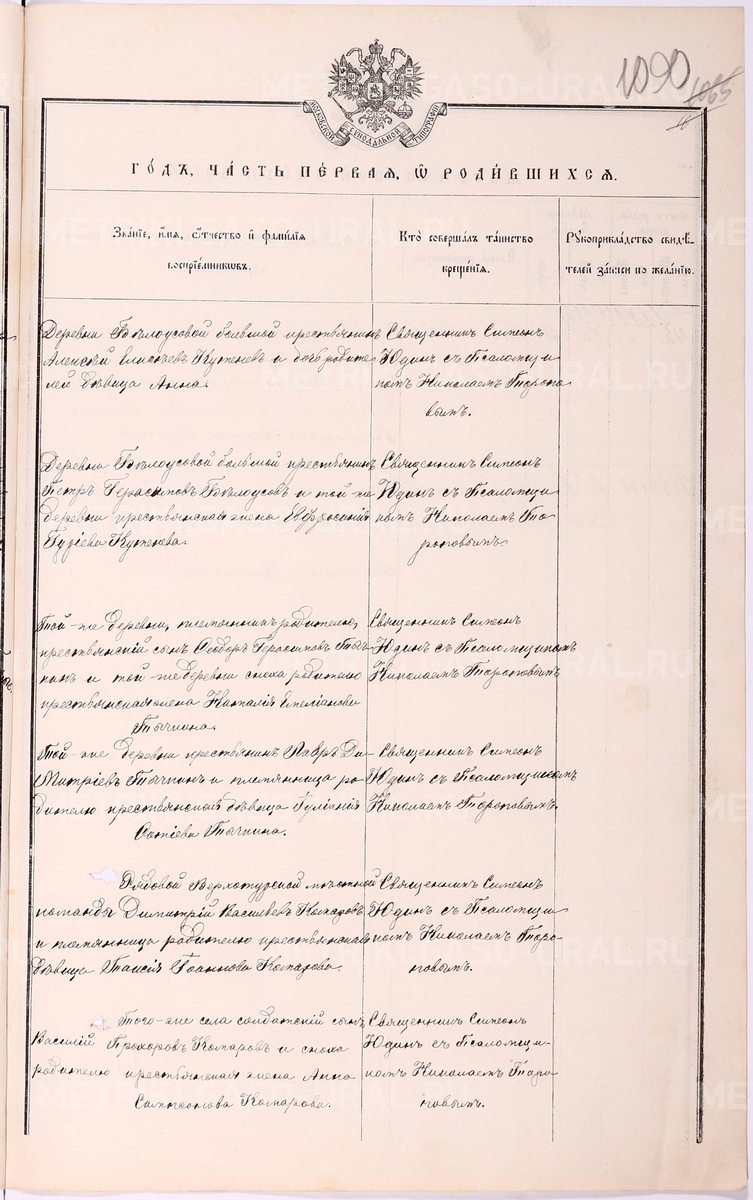 1090
1065
МОСКОВСКОЙ СѴНОДАЛЬНОЙ ТИПОГРАФІИ
ГО́ДЪ, ЧА́СТЬ ПЕ́РВАЯ, Ѽ РОДИ́ВШИХСЯ.
Зва́нїе, и́мя, ѻ҆́тчество и҆ фами́лїя
воспрїе́мникѡвъ.
Кто̀ соверша́лъ та́инство
креще́нїя.
Рꙋкоприкла́дство свидѣ́-
телей за́писи по жела́нїю.
Деревни Бѣлоусовой большой крестьянинъ
Алексѣй Елисѣевъ Кутеневъ и дочь родите
лей дѣвица Анна.
Священникъ Симеонъ
Юдинъ съ Псаломщи
комъ Николаемъ Торопо
вымъ.
Деревни Бѣлоусовой большой крестьянинъ
Петръ Герасимовъ Бѣлоусовъ и той-же
деревни крестьянская жена Евфросинія
Гуріева Кутенева.
Священникъ Симеонъ
Юдинъ съ Псаломщи
комъ Николаемъ То
роповымъ.
Той-же деревни, племянникъ родителю,
крестьянскій сынъ Ѳедоръ Герасимовъ Тыч-
кинъ и той-же деревни сноха родителю
крестьянская жена Наталія Емеліанова
Тычкина.
Священникъ Симеонъ
Юдинъ съ Псаломщикомъ
Николаемъ Тороповымъ
Той-же деревни крестьянинъ Лавръ Ди-
митріевъ Тычкинъ и племянница ро-
дителю крестьянская дѣвица Іуліанія
Тычкина.
Священникъ Симеонъ
Юдинъ съ Псаломщикомъ
Николаемъ Тороповымъ.
Рядовой Верхотурской мѣстной
команды Димитрій Васильевъ Комаровъ
и племянница родителю крестьянская
дѣвица Таисія Іоаннова Комарова.
Священникъ Симеонъ
Юдинъ съ Псаломщи
комъ Николаемъ Торо-
повымъ.
Того-же села солдатскій сынъ
Василій Прохоровъ Комаровъ и сноха
родителю крестьянская жена Анна
Сампсонова Комарова.
Священникъ Симеонъ
Юдинъ съ Псаломщи-
комъ Николаемъ Торо
повымъ.